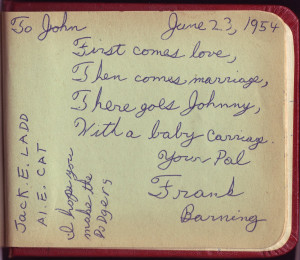 To John
June 23, 1954
First comes love,
Then comes marriage,
There goes Johnny,
With a baby carriage.
Your Pal
Frank
Barning
JACK E. LADD
AL. E. CAT
I hope you
make the
Dodgers